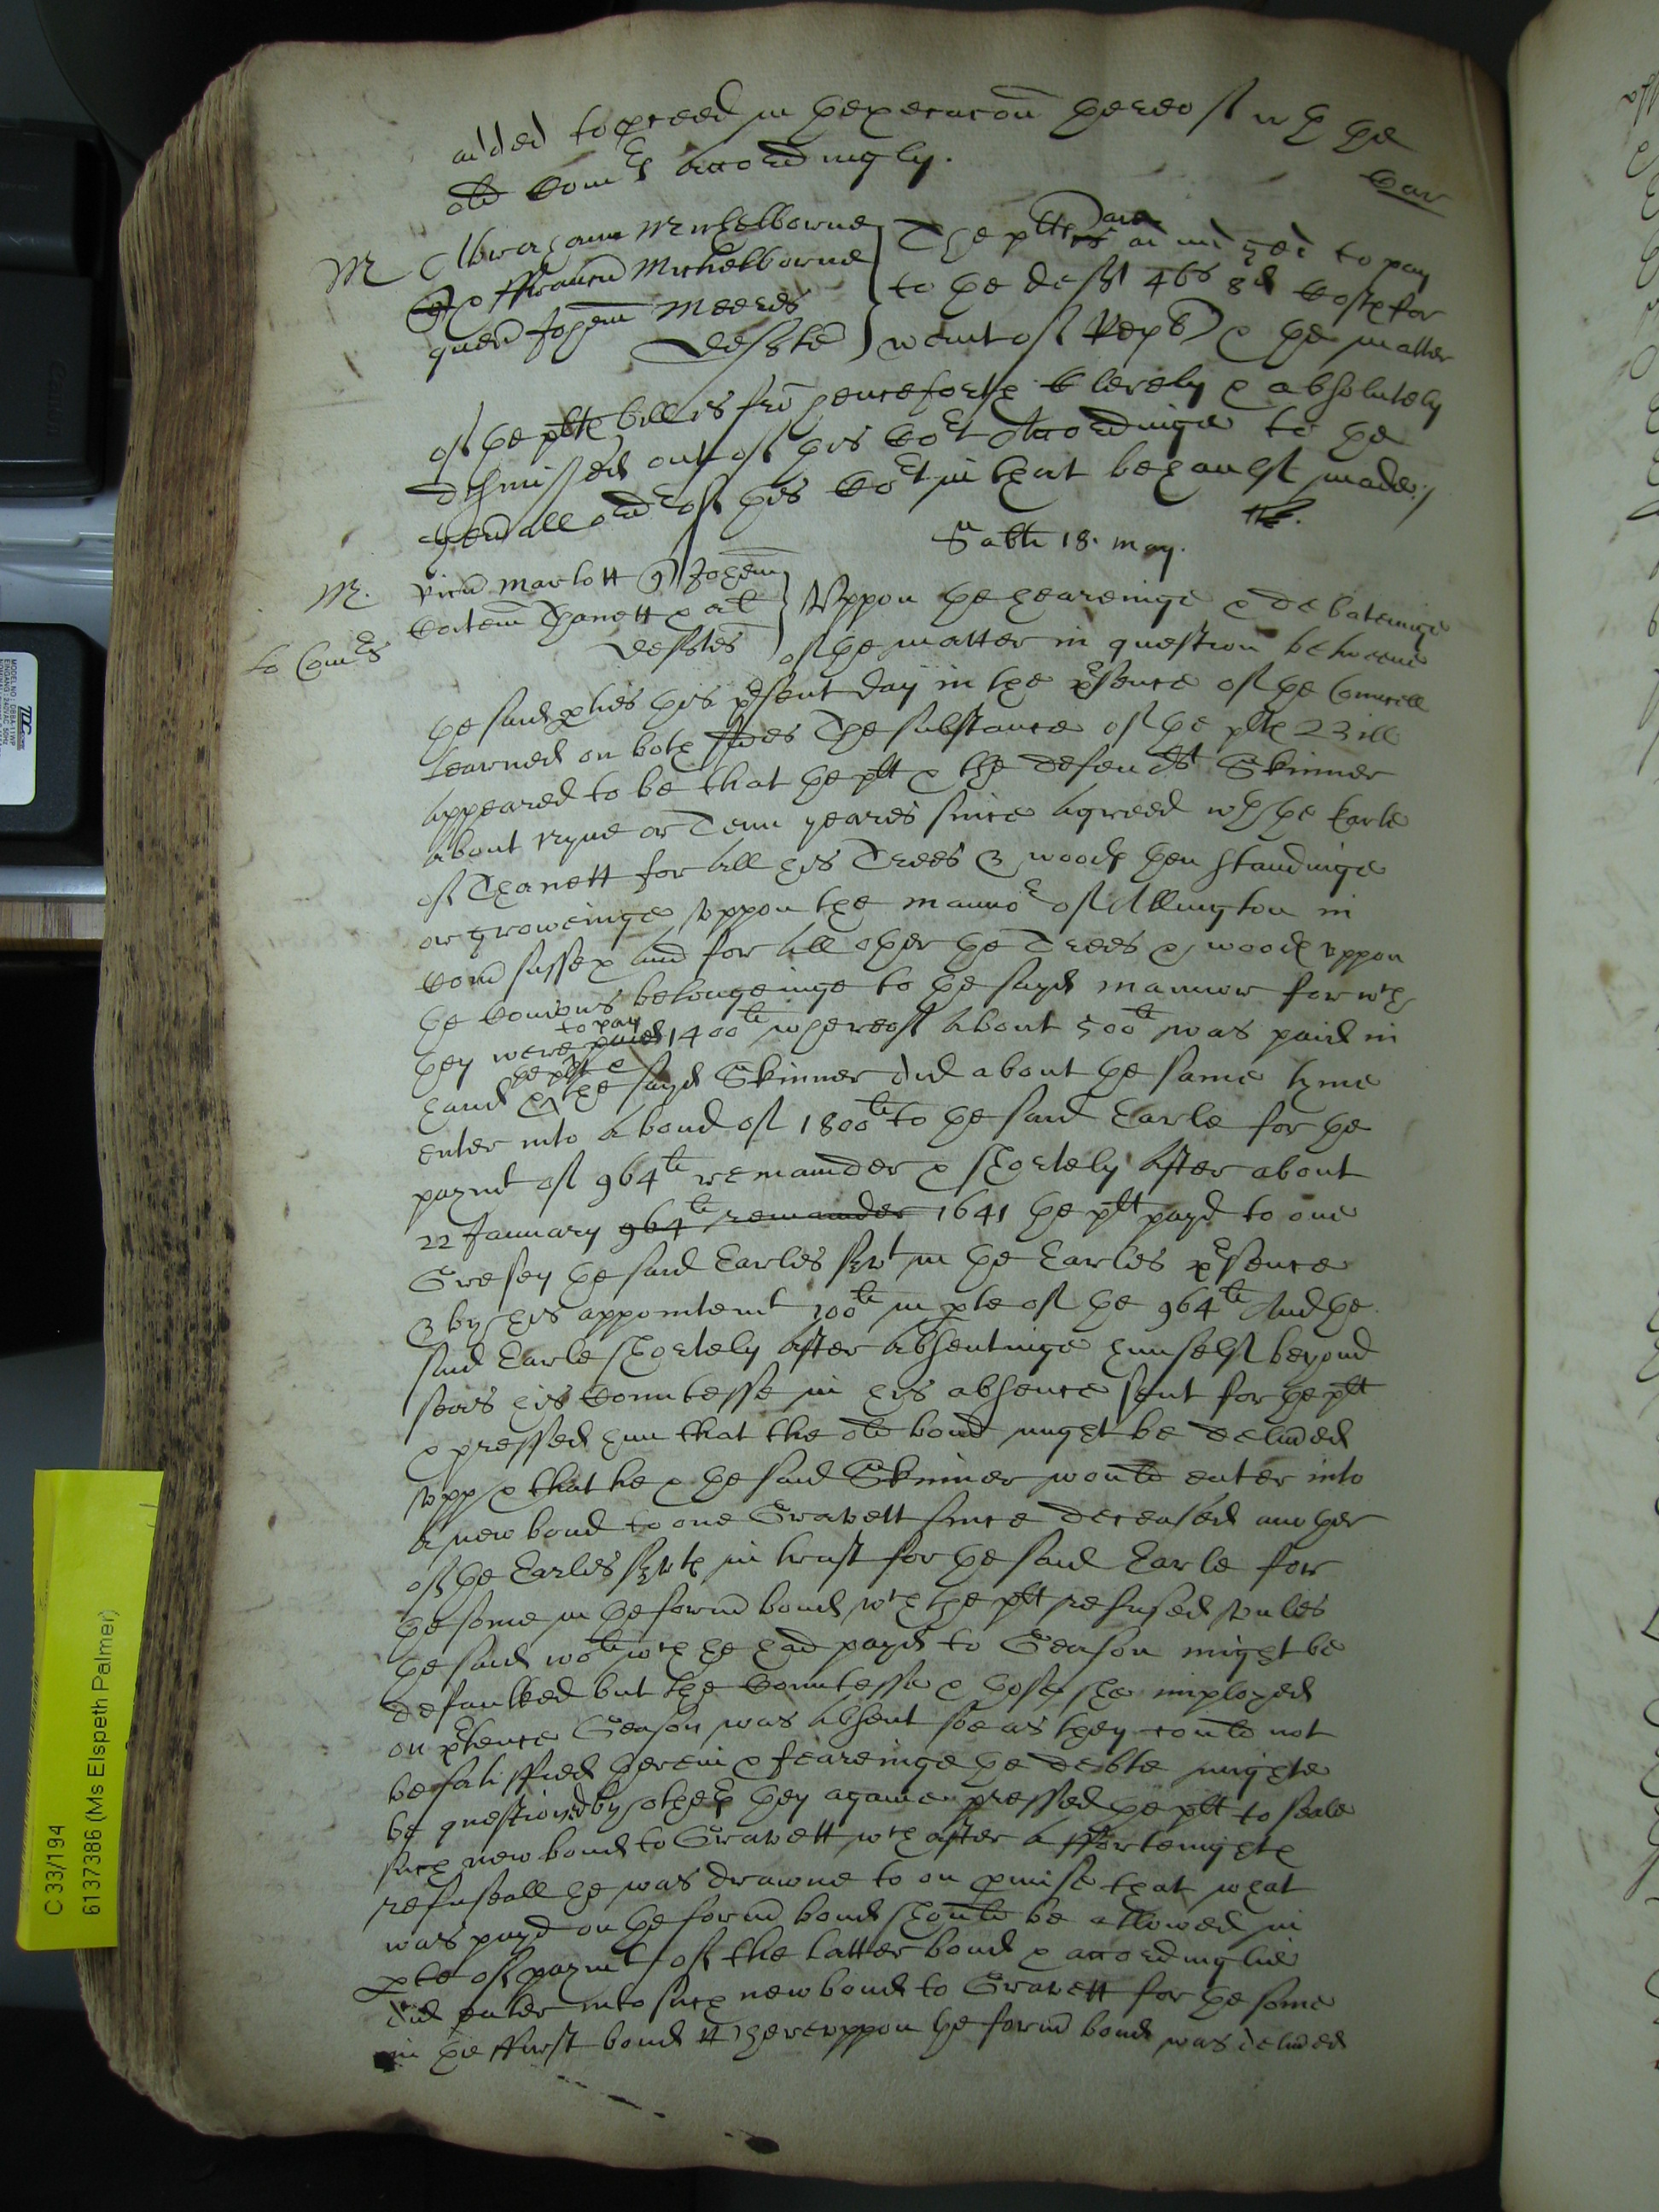 added to p̱ceed in thexecucoñ thereof wth the
old Comrs accordingly.
Car
M Abraham Michelborne
& ffrancũ Michelborne
quer Joħem Meeres
defđte
The pltes are adiudged to pay
to the defđt 46s 8d Costs for
want of Repl & the matter
of the plts bill is frõ henceforth Clerely & absolutely
dismissed out of this Cort Accordinge to the
gen̄all order of this Cort in that behaulf made./
Sabti 18. may.
M. Ricũ Marlott q Joħem
Comitem Thanett & al
defđtes
to Comrs
Vppon the heareinge & debateinge
of the matter in question betweene
the said p̱ties this p̱sent day in the p̱sence of the Councell
Learned on both sides The substance of the plts Bill
Appeared to be that the plt & the defendt Skinner
about Nyne or Tenn yeares since Agreed wth the Earle
of Thanett for All his Trees & woods then standinge
or groweinge vppon the mannor of Allington in
Com̃ Sussex And for All other the Trees & woods vppon
the Com̃ons belongeinge to the sayd mannor for wch
they were to pay paied 1400li whereof About 500li was paid in
hand & the plt & the sayd Skinner did about the same tyme
enter into A bond of 1800li to the said Earle for the
paymt of 964li remainder & shortely After about
22 January 964li remainder 1641 the plt payd to one
Gresey the said Earles servt in the Earles p̱sence
& by his appointemt 100li in p̱te of the 964li And the
said Earle shortely After Absentinge himself beyond
seas his Countesse in his absence sent for the plt
& pressed him that the old bond might be deliũed
vpp & that he & the said Skinner would enter into
A new bond to one Gravett since deceased another
of the Earles servts in trust for the said Earle for
the some in the form̃ bond wch the plt refused vnles
the said 100li wch he had payd to Geason might be
defaulked but the Countesse & those she imployed
on p̱tence Geason was Absent soe as they could not
be satisffied therein & feareinge the debte mighte
be questioned by others they againe pressed the plt to seale
such new bond to Gravett wch after A ffortenights
refuseall he was drawne to on p̱mise that what
was payd on the form̃ bond should be allowed in
p̱te of paymt of the latter bond & accordinglie
did enter into such new bond to Gravett for the some
in the ffirst bond & therevppon the form̃ bond was deliũed
C 33/194
6137386 (Ms Elspeth Palmer)